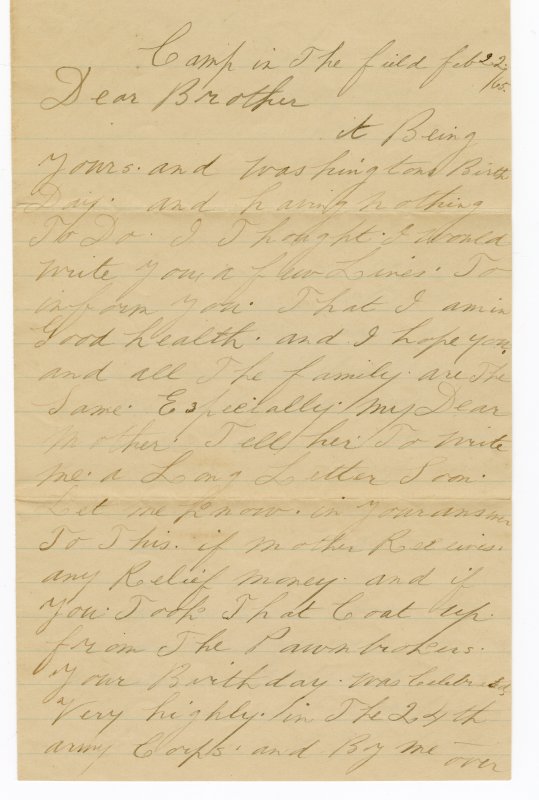 Camp in The field feb 22
/65.
Dear Brother
it Being
Yours. and Washingtons Birth
Day. and having nothing
To Do. I Thought. I would
write You, a few Lines. To
inform You. That I am in
Good health. and I hope you.
and all The family. are The
Same. Especially. my Dear
Mother. Tell her. To write
me. a Long Letter Soon.
Let me know. in Your answer
To This. if mother Receives.
any Relief money. and if
You. Took That Coat up.
from The Pawnbrokers.
Your Birthday. was Celebrated
Very highly. in The 24th
army Corps. and By me
over